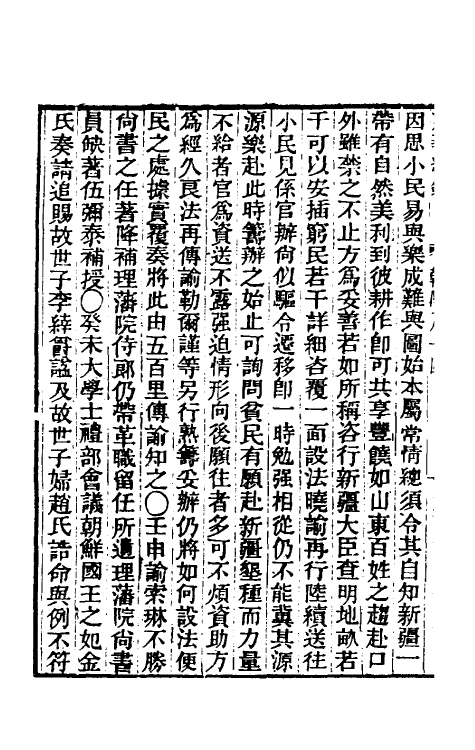 因思小民易與樂成難與圖始本屬常情總須令其自知新疆一
帶有自然美利到彼耕作卽可共享豐饒如山東百姓之趨赴口
外雖禁之不止方爲妥善若如所稱咨行新疆大臣查明地畝若
干可以安插窮民若干詳細咨覆一面設法曉諭再行陸續送往
小民見係官辦何似驅令遷移卽一時勉强相從仍不能冀其源
源樂赴此時籌辦之始止可詢問貧民有願赴新疆墾種而力量
不給者官爲資送不露强迫情形向後願往者多可不煩資助方
爲經久良法再傳諭勒爾謹等另行熟籌妥辦仍將如何設法便
民之處據實覆奏將此由五百里傳諭知之〇壬申諭索琳不勝
尙書之任著降補理藩院侍郎仍帶革職留任所遺理藩院尙書
員缺著伍彌泰補授〇癸未大學士禮部會議朝鮮國王之妃金
氏奏請追賜故世子李緈爵諡及故世子婦趙氏誥命與例不符